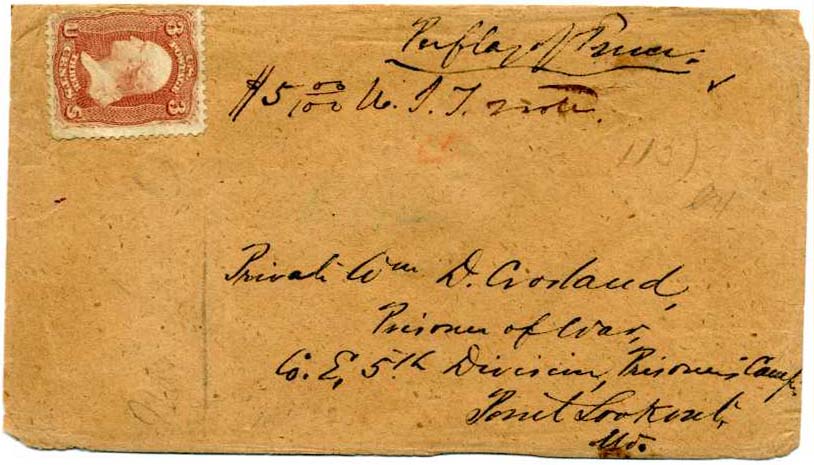 Per flag of Truce.
$5 00/100 U. S. T. note.
113)
Private Wm D. Crosland,
Prisoner of War,
Co. E, 5th Division, Prisoners Camp
Point Lookout,
Md.
U 3 CENTS 3 S